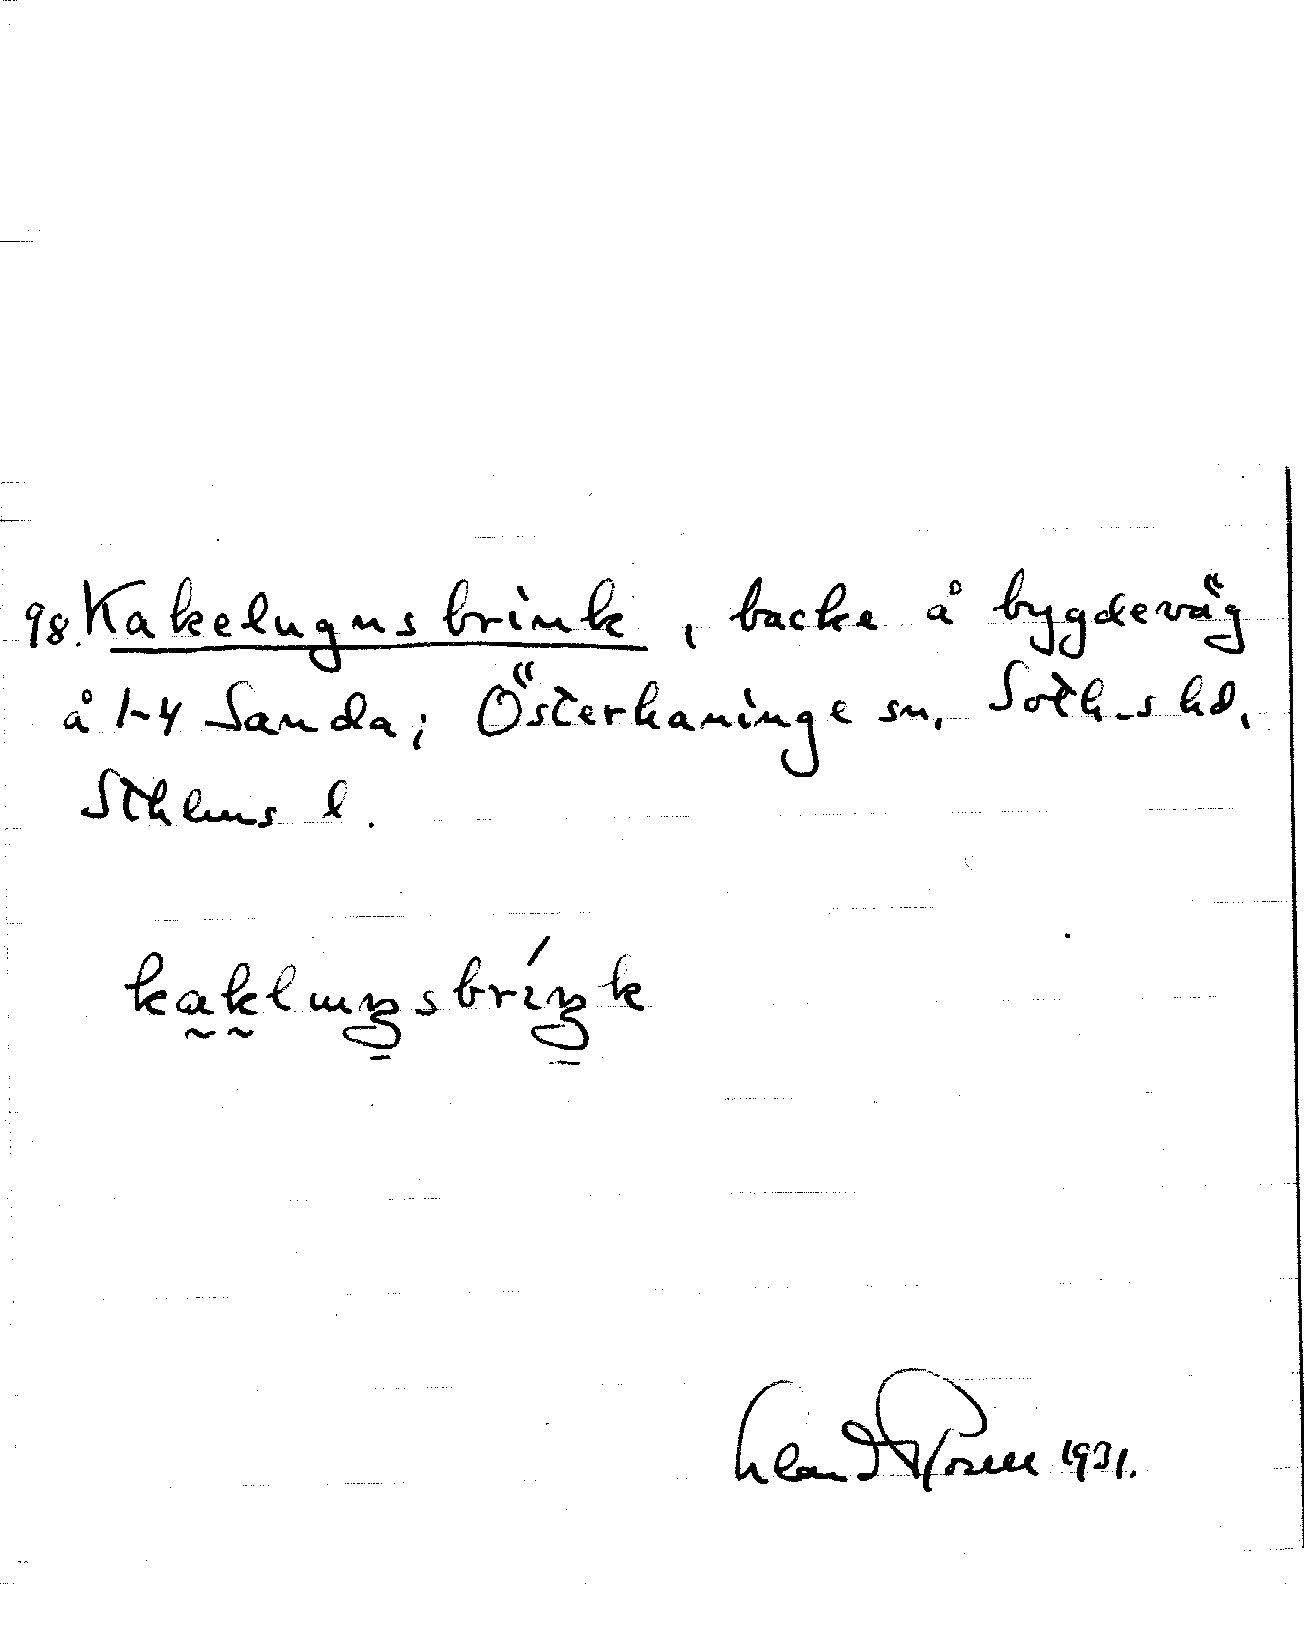 98. Kakelugnsbrink, backe å bygdeväg
å 1-4 Sanda; Österhaninge sn, Soth-s hd,
Sthlms l.
kakluŋsbríŋk
1931.